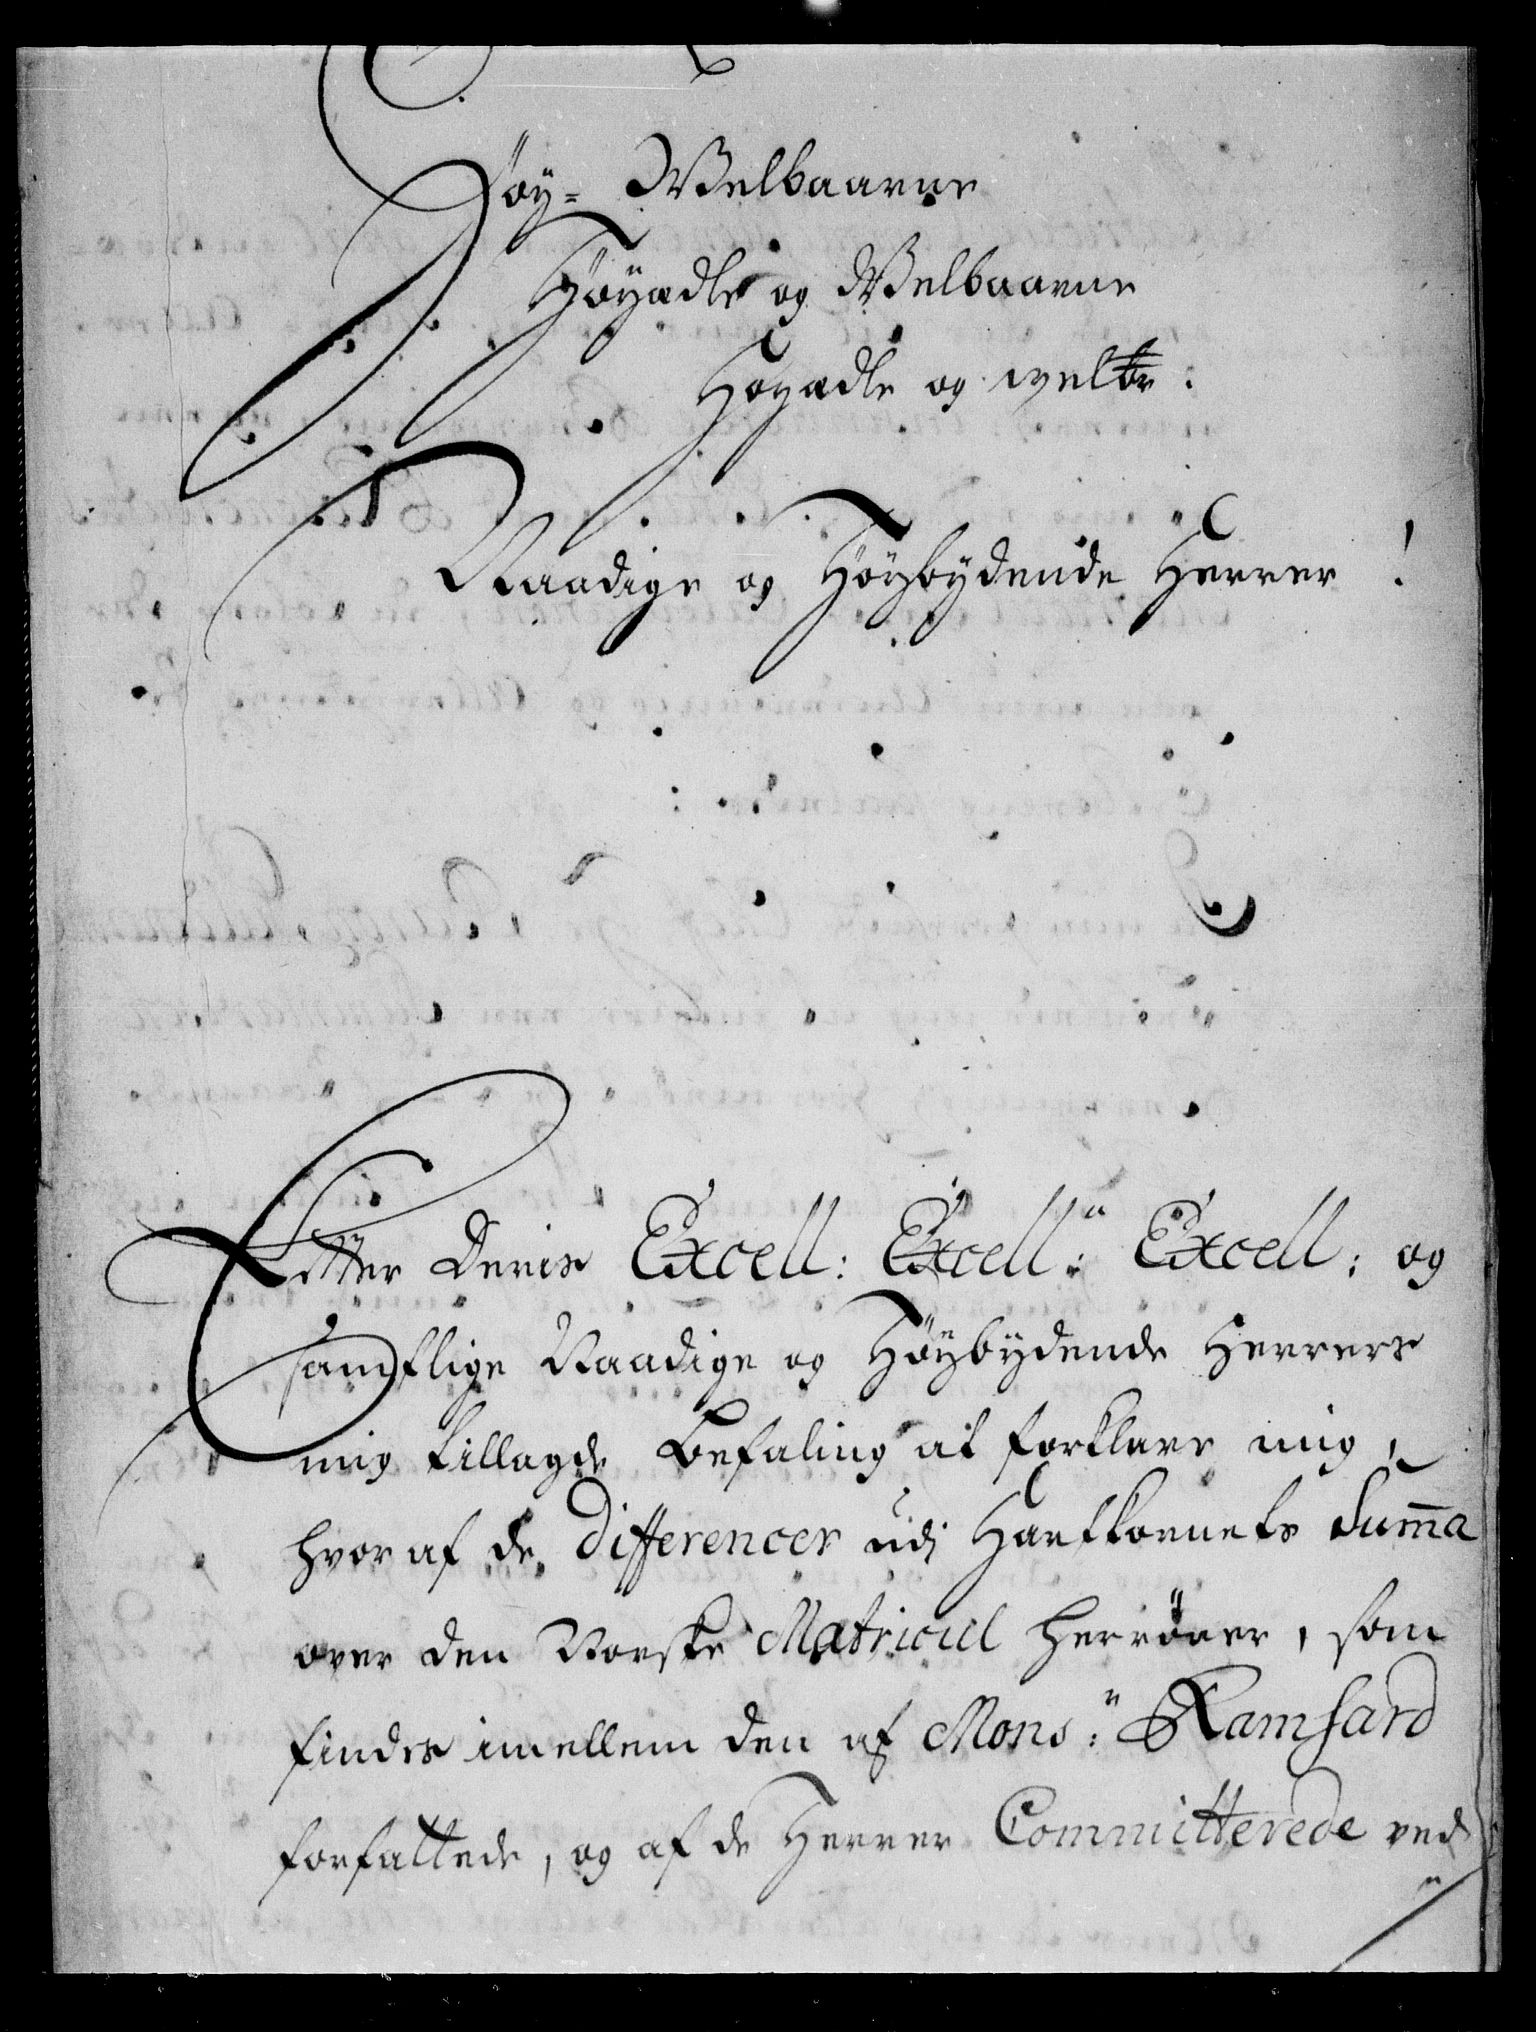 Høy= Welbaarne
Høyædle og Welbaarne
Høyædle og welbr:
Naadige og Høybydende Herrer!
Efter Deris Excell: Excell: Excell: og
samptlige Naadige og Høybydende Herrers
mig tillagde befaling at forklare mig,
hvor af de Differencer udj Hartkornets Sum̄a
over den Norske Matricul herrører, som
findes imellem den af Monsr: Ramshard
forfattede, og af de Herrer Committerede ved